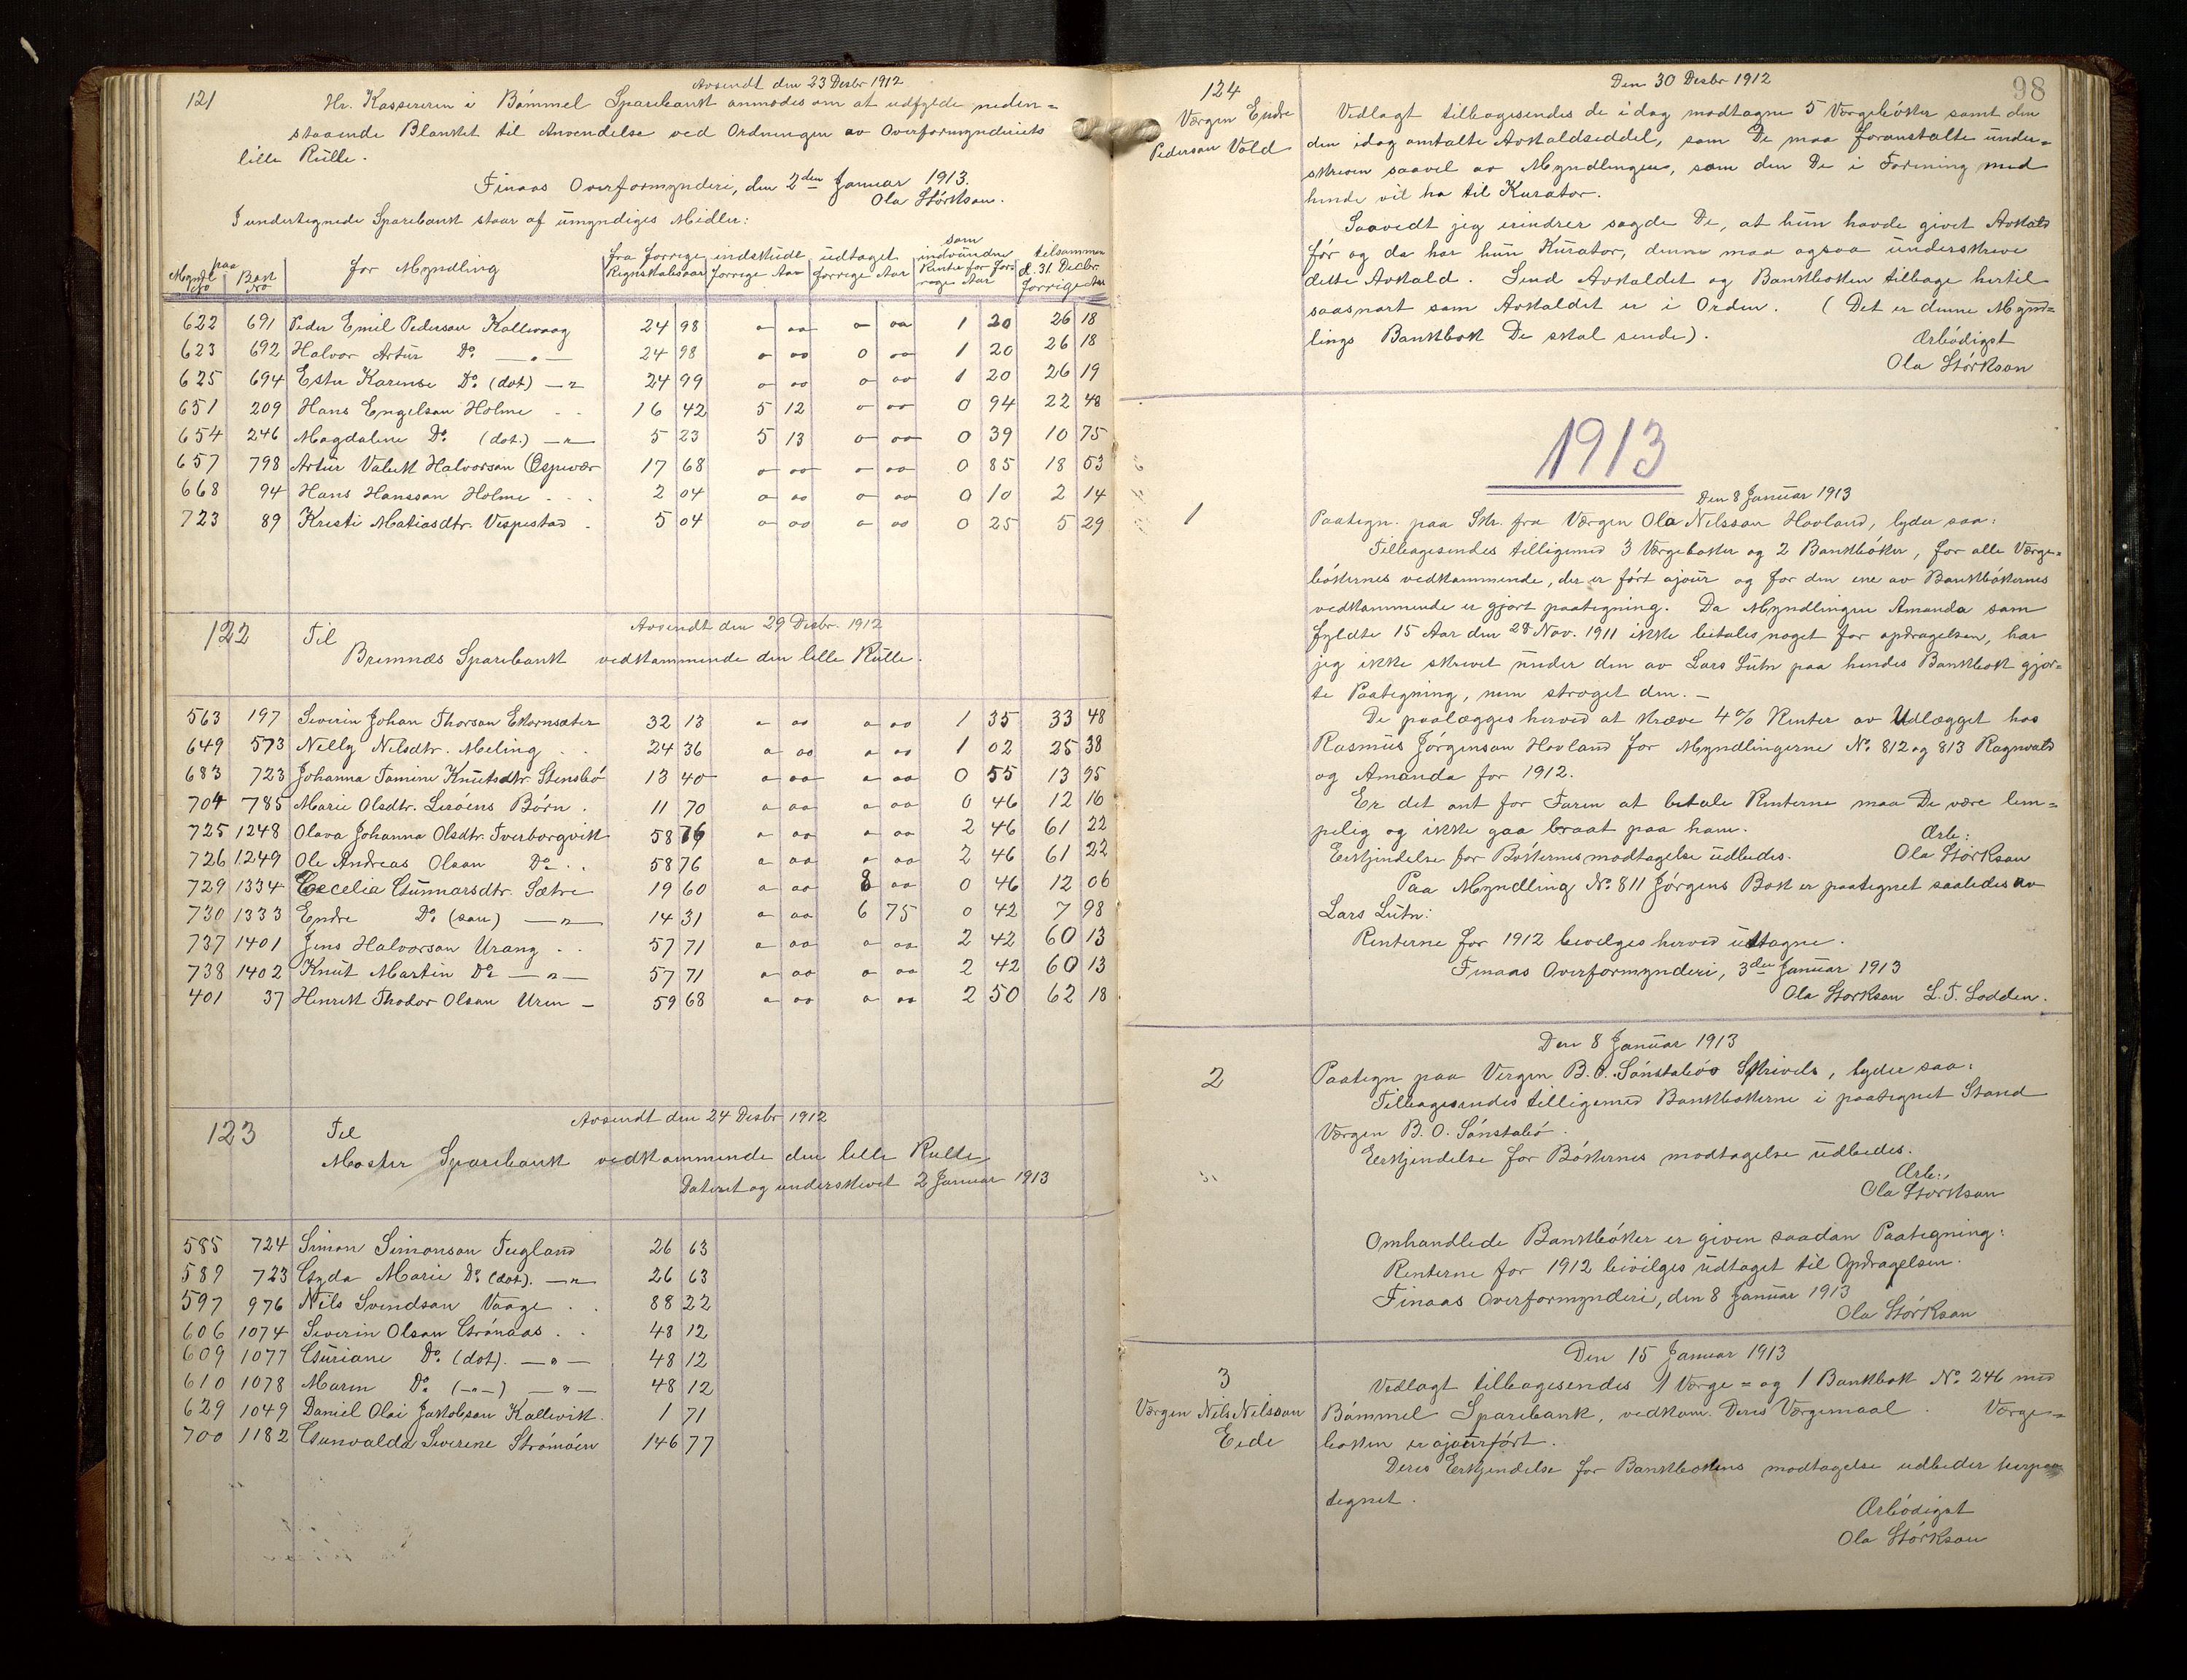 Avsendt den 23 Desbr 1912
121
Hr. Kassereren i Bømmel Sparebank anmodes om at udfylde neden=
staaende Blanket til Anvendelse ved Ordningen av Overformynderiets
lille Rulle.
Finaas Overformynderi, den 2den Januar 1913.
Ola Størksen.
I undertegnede Sparebank staar af umyndiges Midler:
Myndl No | paa Bank No | for Myndling | fra forrige Regnskabsaar | indskudt forrige Aar | udtaget forrige Aar | som indvundne Renter for forrige Aar | tilsammen d. 31 Decbr. forrige Aar
622 691 Peder Emil Pedersen Kallevaag 24 98 o oo o oo 1 20 26 18
623 692 Halvor Artur Do. —"— 24 98 o oo o oo 1 20 26 18
625 694 Ester Karense Do. (dot) —"— 24 99 o oo o oo 1 20 26 19
651 209 Hans Engelsen Holme 16 42 5 12 o oo 0 94 22 48
654 246 Magdaline Do. (dot.) —"— 5 23 5 13 o oo 0 39 10 75
657 798 Artur Valek Halvorsen Espevær 17 68 o oo o oo 0 85 18 53
668 94 Hans Hanssen Holme 2 04 o oo o oo 0 10 2 14
723 89 Kristi Matiasdtr. Vespestad 5 04 o oo o oo 0 25 5 29
Avsendt den 29 Desbr. 1912
122 Til
Bremnæs Sparebank vedkommende den lille Rulle.
563 197 Severin Johan Thorsen Ekornsæter 32 13 o oo o oo 1 35 33 48
649 573 Nelly Nilsdtr. Meling 24 36 o oo o oo 1 02 25 38
683 723 Johanna Tomine Knutsdtr. Stensbø 13 40 o oo o oo 0 55 13 95
704 785 Marie Olsdtr. Lerøens Børn 11 70 o oo o oo 0 46 12 16
725 1248 Olava Johanna Olsdtr. Tverborgvik 58 76 o oo o oo 2 46 61 22
726 1249 Ole Andreas Olsen Do. 58 76 o oo o oo 2 46 61 22
729 1334 Cecelia Gunnarsdtr. Sætre 19 60 o oo 8 oo 0 46 12 06
730 1333 Endre Do. (søn) —"— 14 31 o oo 6 75 0 42 7 98
737 1401 Jens Halvorsen Urang 57 71 o oo o oo 2 42 60 13
738 1402 Knut Martin Do. —"— 57 71 o oo o oo 2 42 60 13
401 37 Henrik Thodor Olsen Uren — 59 68 o oo o oo 2 50 62 18
Avsendt den 24 Desbr 1912
123 Til
Moster Sparebank vedkommende den lille Rulle,
Dateret og underskrevet 2 Januar 1913
585 724 Simon Simonsen Tegland 26 63
589 723 Gyda Marie Do. (dot). —"— 26 63
597 976 Nils Svendsen Vaage 88 22
606 1074 Severin Olsen Grønaas 48 12
609 1077 Guriane Do. (dot). —"— 48 12
610 1078 Maren Do. (—"—) —"— 48 12
629 1049 Daniel Olai Jakobsen Kallevik. 1 71
700 1182 Gunvalda Severine Strømøen 146 77
98
Den 30 Desbr 1912
124
Værgen Endre
Pedersen Vold
Vedlagt tilbagesendes de idag modtagne 5 Værgebøker samt den
den idag omtalte Avkaldseddel, som De maa foranstalte under=
skreven saavel av Myndlingen, som den De i Forening med
hende vil ha til Kurator.
Saavidt jeg erindrer sagde De, at hun havde givet Avkald
før og da har hun Kurator, denne maa ogsaa underskrive
dette Avkald. Send Avkaldet og Bankboken tilbage hertil
saasnart som Avkaldet er i Orden. (Det er denne Mynd=
lings Bankbok De skal sende).
Ærbødigst
Ola Størksen
1913
Den 8 Januar 1913
1
Paategn. paa Skr. fra Værgen Ola Nilssen Hovland, lyder saa:
Tilbagesendes tilligemed 3 Værgebøker og 2 Bankbøker, for alle Værge=
bøkernes vedkommende, der er ført ajour og for den ene av Bankbøkernes
vedkommende er gjort paategning. Da Myndlingen Amanda som
fyldte 15 Aar den 28 Nov. 1911 ikke betales noget for opdragelsen, har
jeg ikke skrevet under den av Lars Lütn paa hendes Bankbok gjor=
te Paategning, men strøget den. —
De paalægges herved at kræve 4% Renter av Udlægget hos
Rasmus Jørgensen Hovland for Myndlingerne No. 812 og 813 Ragnvald
og Amanda for 1912.
Er det ont for Faren at betale Renterne maa De være lem=
pelig og ikke gaa braat paa ham.
Ærb:
Erkjendelse for Bøkernes modtagelse udbedes.
Ola Størksen
Paa Myndling No. 811 Jørgens Bok er paategnet saaledes av
Lars Lütn:
Renterne for 1912 bevilges herved uttagne.
Finaas Overformynderi, 3die Januar 1913
Ola Størksen L. T. Lodden.
Den 8 Januar 1913
2
Paategn paa Vergen B. O. Sønstabøs Skrivels, lyder saa:
Tilbagesendes tilligemed Bankbøkerne i paategnet Stand
Værgen B. O. Sønstabø.
Erkjendelse for Bøkernes modtagelse udbedes.
Ærb:,
Ola Størksen
Omhandlede Bankbøker er given saadan Paategning:
Renterne for 1912 bevilges udtaget til Opdragelsen.
Finaas Overformynderi, den 8 Januar 1913
Ola Størksen
Den 15 Januar 1913
3
Værgen Nils Nilssen
Eide
Vedlagt tilbagesendes 1 Værge= og 1 Bankbok No. 246 med
Bømmel Sparebank, vedkom. Deres Værgemaal. Værge=
boken er ajourført.
Deres Erkjendelse for Bankbokens modtagelse udbedes herpaa
tegnet.
Ærbødigst
Ola Størksen